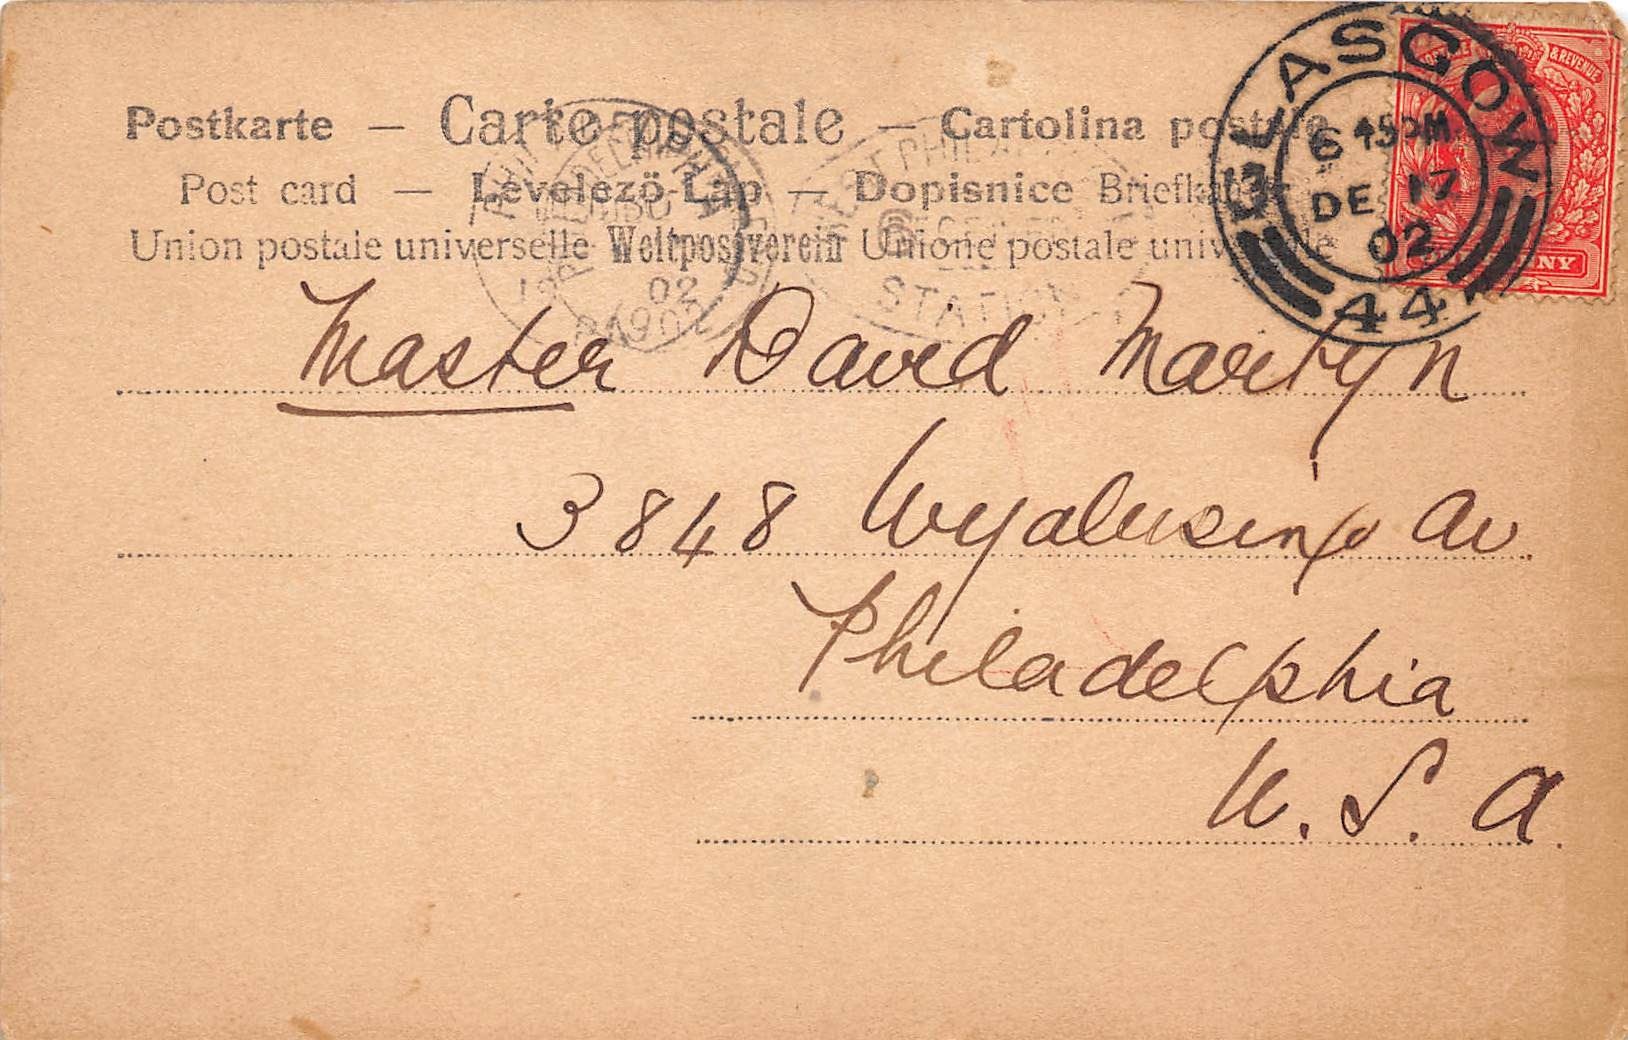 Postkarte — Carte postale — Cartolina postale
Post card — Levelező-Lap — Dopisnice Briefkaart
Union postale universelle Weltpostverein Unione postale universale
GLASGOW
6 45PM
DE 17
02
44
POSTAGE & REVENUE
ONE PENNY
PHILADELPHIA
02
PHILA
STATION
Master David Martyn
3848 Wyalusing Av.
Philadelphia
U. S. A.